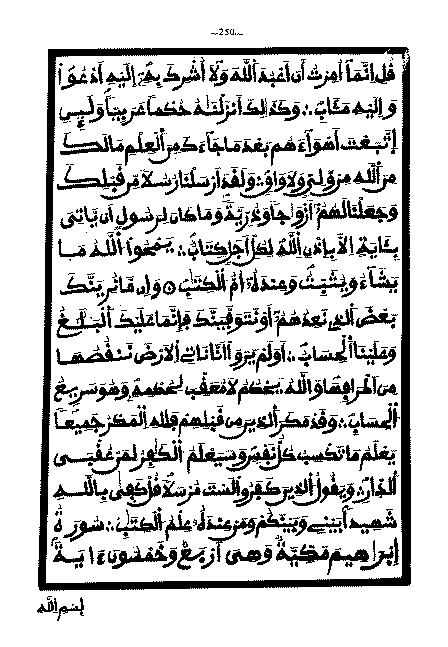 ~250~
قل انما امرت ان اعبد الله ولا اشرك به إليه ادعوا
وإليه مئاب ∴ وكذلك انزلنه حكما عربيا ولين
اتبعت أهواءهم بعد ما جاءك من العلم مالك
من الله من ولي ولا واق ∴ ولقد ارسلنا رسلا من قبلك
وجعلنا لهم أزواجا وذرية وما كان لرسول ان ياتي
بئاية الا بإذن الله لكل اجل كتاب ∴ يمحوا الله ما
يشاء ويثبت وعنده أم الكتب ۝ وإن ما نرينك
بعض الذي نعدهم أو نتوفينك فإنما عليك البلغ
وعلينا الحساب ∴ أولم يروا انا ناتي الارض ننقصها
من أطرافها والله يحكم لا معقب لحكمه وهو سريع
الحساب ∴ وقد مكر الذين من قبلهم فلله المكر جميعا
يعلم ما تكسب كل نفس وسيعلم الكفر لمن عقبى
الدار ∴ ويقول الذين كفروا لست مرسلا قل كفى بالله
شهيدا بيني وبينكم ومن عنده علم الكتب ∴ سورة
إبراهيم مكية وهي أربع وخمسون ءاية
بسم الله